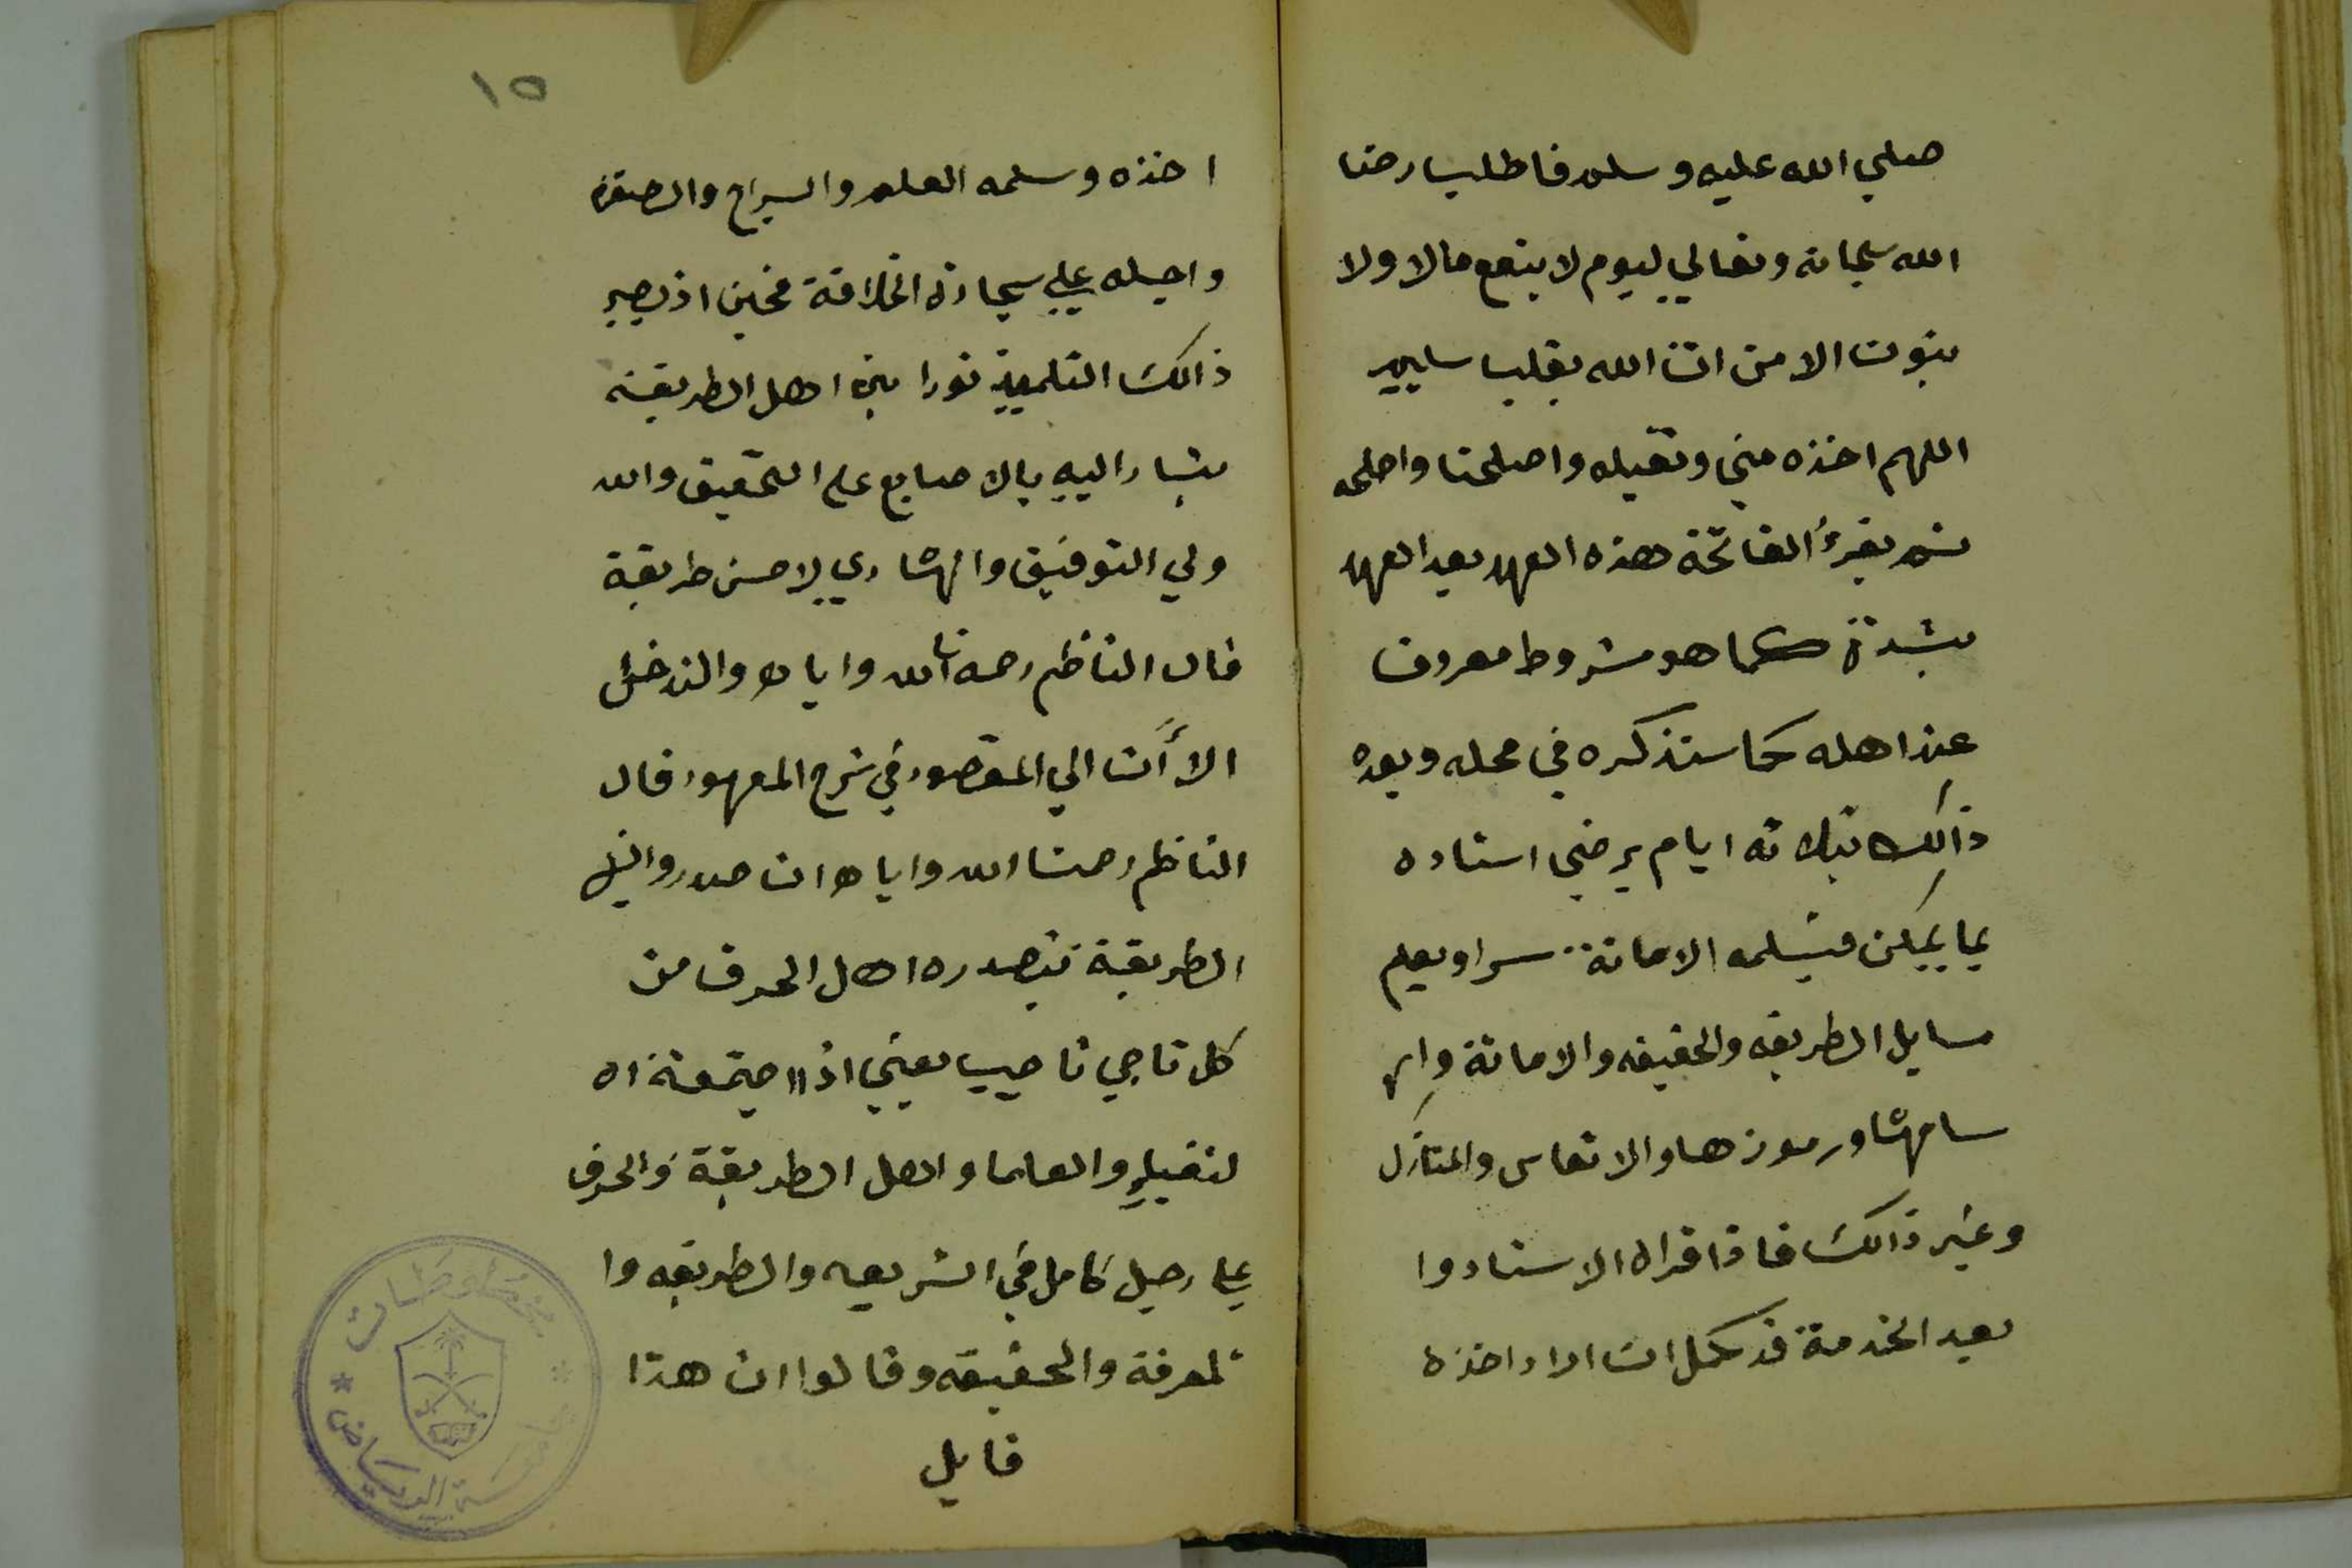 صلي الله عليه وسلم فاطلب رضا
الله سبحانه وتعالي ليوم لا ينفع مالا ولا
بنون الا من اتا الله بقلب سليم
اللهم اخذه مني وتقبله واصلحنا واصلحه
ثم يقرؤ الفاتحة هذه العهد بعد العهد
بشدة كما هو مشروط معروف
عند اهله كما ستذكره في محله وبعده
ذالك بثلاثه ايام يرضي استاده
بما يمكن فيسلمه الامانة سرا ويعلم
مسايل الطريقه والحقيقه والامانة وار
سامهشا ورموزها والانفاس والمنازل
وغير ذالك فاذا قراه الاستاد وا
بعد الخدمة قد كمل ان اراد اخذه
١٥
اخذه وسلمه العلم والسراج والصفره
واجبله علي سجادة الخلافة فحين اذ يصير
ذالك التلميذ نورا بين اهل الطريقة
يشار اليه بالاصابع علم التحقيق والله
ولي التوفيق والهشادي لاحسن طريقة
قال الناظم رحمنا الله واياه والندخل
الأن الي المقصود في شرح المعهود قال
الناظم رحمنا الله واياه ان صدروا
الطريقة تبصدره اهل الحرف من
كل ناجي ناجيب يعني اذا اجتمعة اه
لنقبا والعلما واهل الطريقة والحرف
علي رجل كامل في الشريعه والطريقه وا
لمعرفة والحقيقه وقالوا ان هذا
قايل
مخطوطات
جامعة الرياض